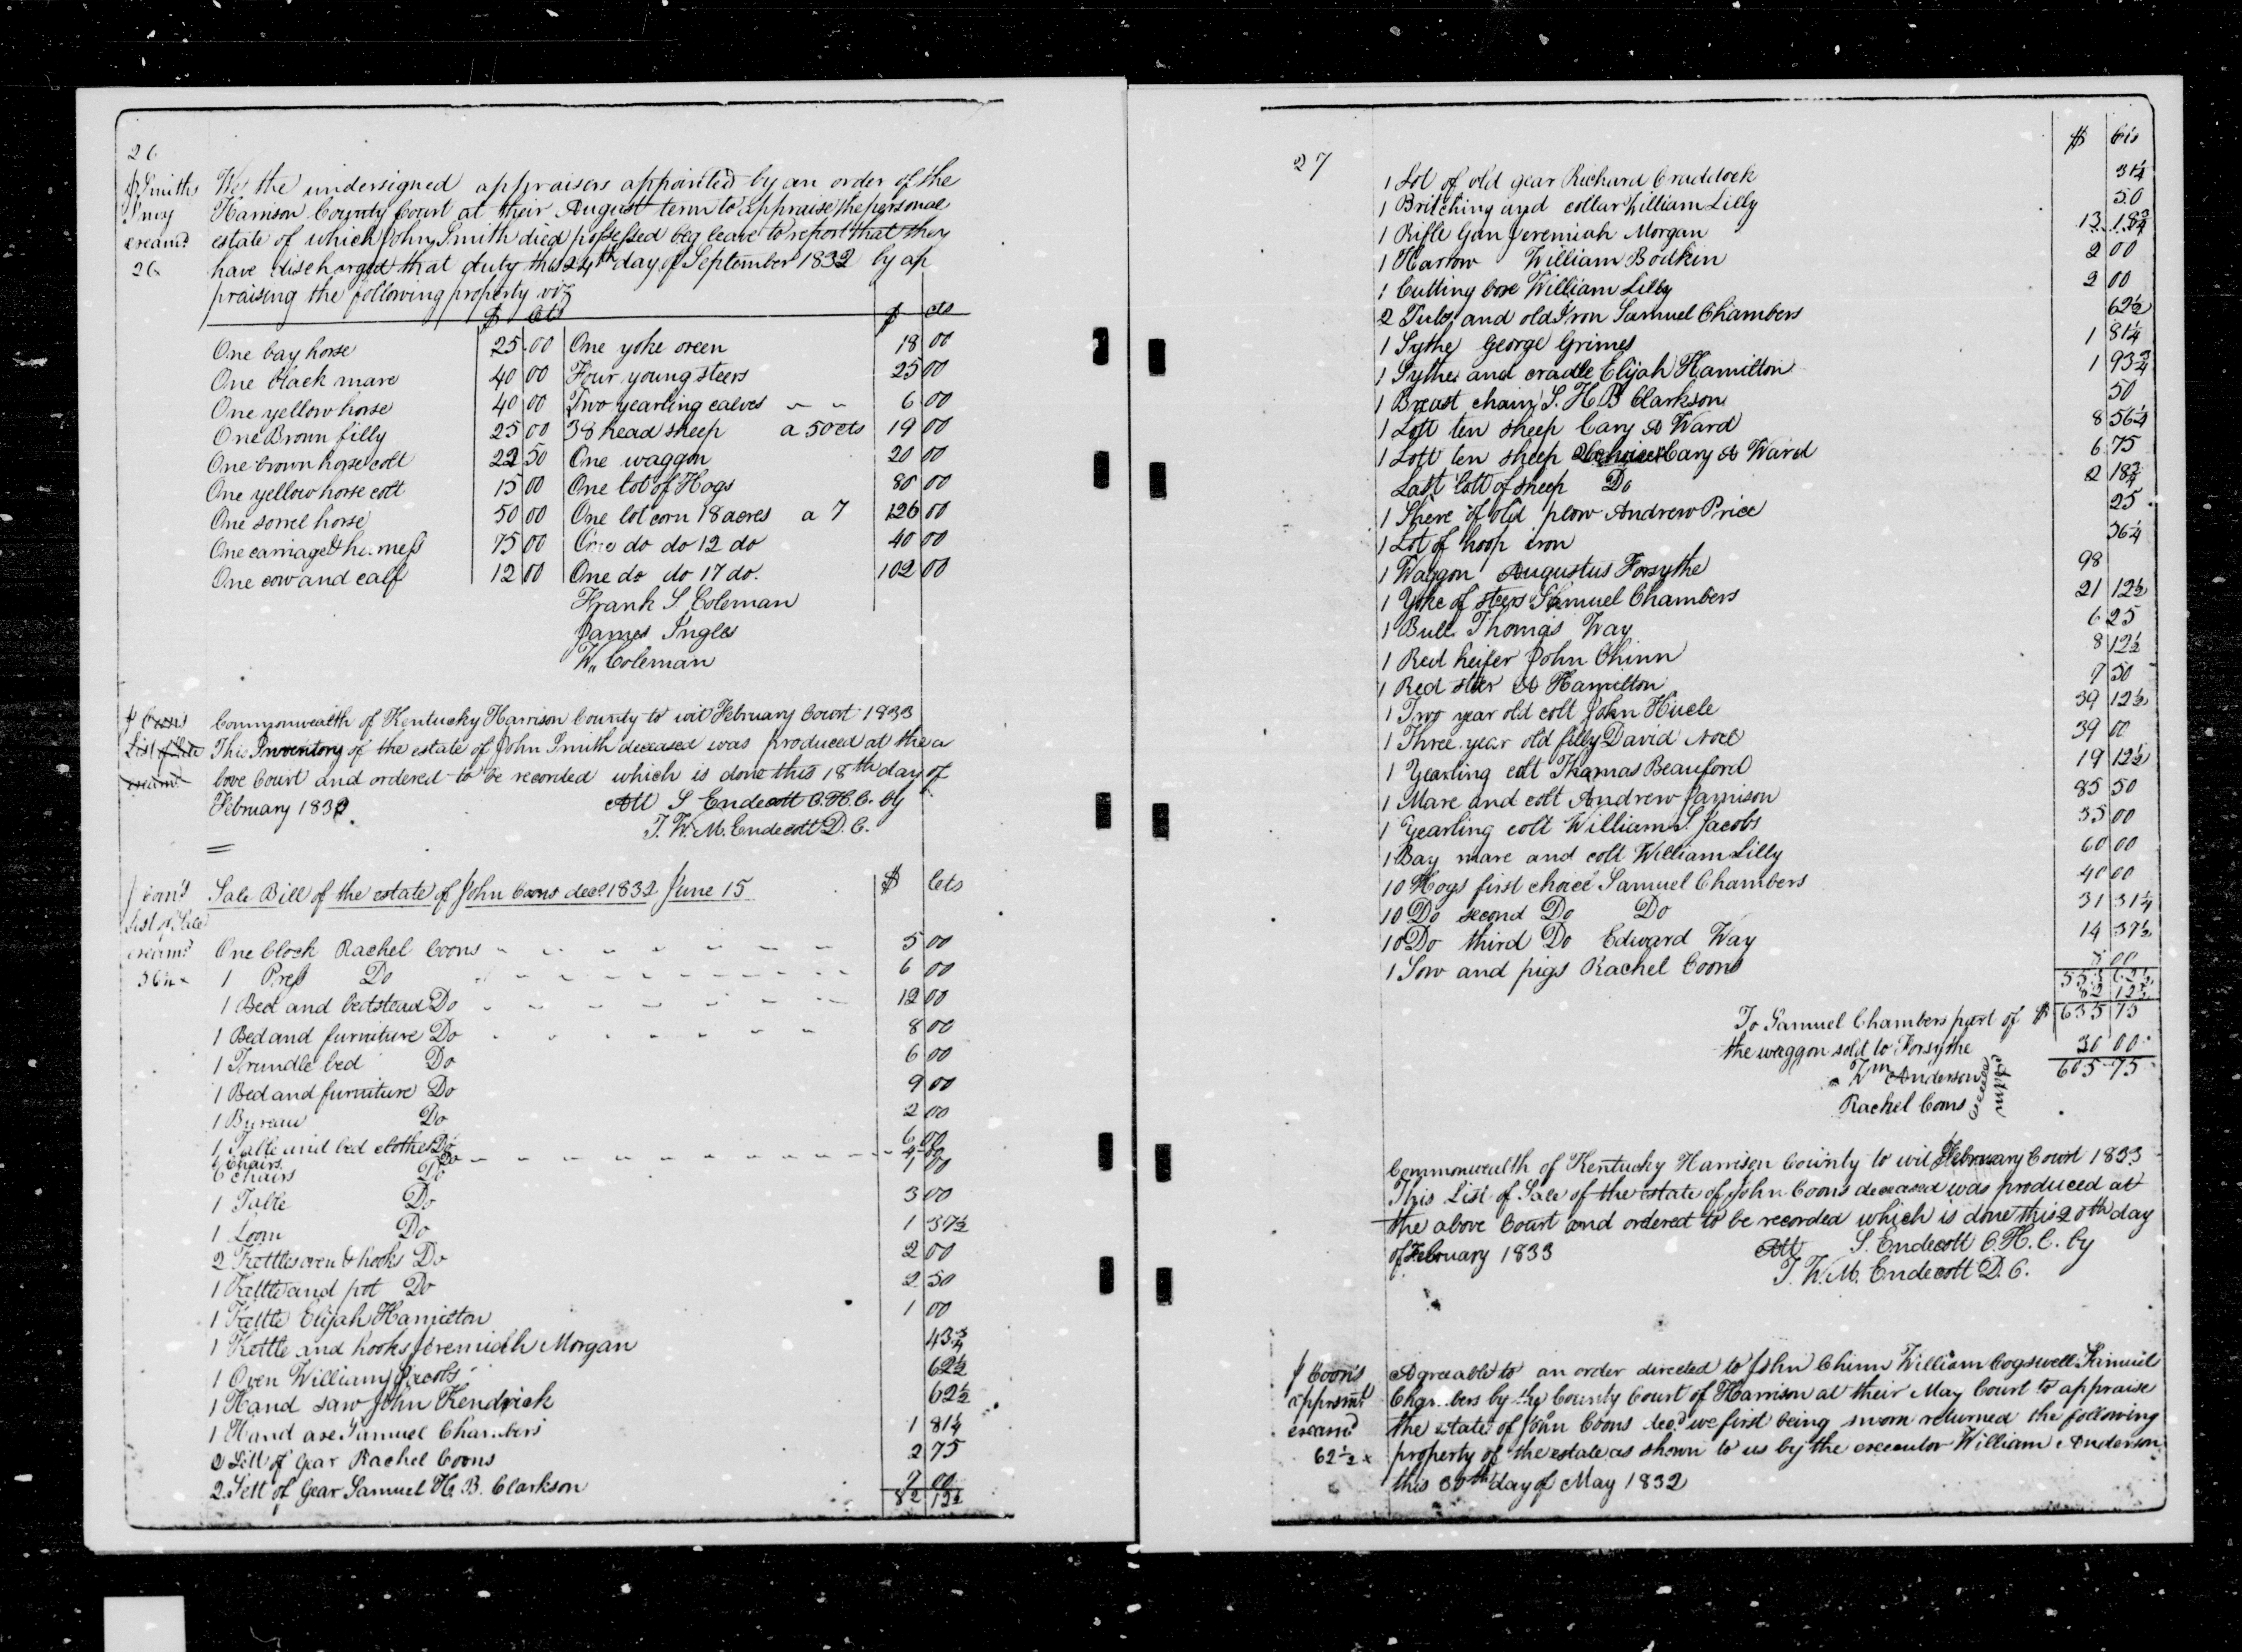 26
J Smiths
Invy
examd
26
We the undersigned appraisers appointed by an order of the
Harrison County Court at their August term to appraise the personal
estate of which John Smith died possessed beg leave to report that they
have discharged that duty this 24th day of September 1832 by ap
praising the following property viz
$ cts $ cts
One bay horse 25.00 One yoke oxen 18 00
One black mare 40 00 Four young steers 25 00
One yellow horse 40 00 Two yearling calves 6 00
One Brown filly 25 00 38 head sheep a 50 cts 19 00
One brown horse colt 22 50 One waggon 20 00
One yellow horse colt 15 00 One lot of Hogs 80 00
One sorrel horse 50 00 One lot corn 18 acres a 7 126 00
One carriage & harness 75 00 One do do 12 do 40 00
One cow and calf 12 00 One do do 17 do. 102 00
Frank S. Coleman
James Ingles
W. Coleman
J Coons
List of Sale
examd
Commonwealth of Kentucky Harrison County to wit February Court 1833
This Inventory of the estate of John Smith deceased was produced at the a
bove Court and ordered to be recorded which is done this 18th day of
February 1833.
Att S Endecott C.H.C. by
T. W. M. Endecott D. C.
J Coon's
List of Sale
examd
Sale Bill of the estate of John Coons decd 1832 June 15 $ Cts
One Clock Rachel Coons 5 00
1 Press Do 6 00
1 Bed and bedstead Do 12 00
1 Bed and furniture Do 8 00
1 Trundle bed Do 6 00
1 Bed and furniture Do 9 00
1 Bureau Do 2 00
1 Table and bed clothes Do 6 00
6 Chairs Do
6 Chairs Do 1 00
1 Table Do 3 00
1 Loom Do 1 37½
2 Kettles oven & hooks Do 2 00
1 Kettle and pot Do 2 50
1 Kettle Elijah Hamilton 1 00
1 Kettle and hooks Jeremiah Morgan 43¾
1 Oven William Jacobs 62½
1 Hand saw John Kendrick 62½
1 Hand axe Samuel Chambers 1 81¼
2 Sett of Gear Rachel Coons 2 75
2 Sett of Gear Samuel H. B. Clarkson 7 00
82 12½
27
$ Cts
1 Lot of old gear Richard Craddock 31¼
1 Britching and collar William Lilly 50
1 Rifle Gun Jeremiah Morgan 13 18¾
1 Harrow William Bodkin 2 00
1 Cutting box William Lilly 2 00
2 Tubs and old Iron Samuel Chambers 62½
1 Sythe George Grimes 1 81¼
1 Sythe and cradle Elijah Hamilton 1 93¾
1 Breast chain S. H B Clarkson 50
1 Lott ten sheep Cary A Ward 8 56¼
1 Lott ten sheep 2 choice Cary A Ward 6 75
Last lott of sheep Do 2 18¾
1 Shere of old plow Andrew Price 25
1 Lot of hoop iron 36¼
1 Waggon Augustus Forsythe 98
1 Yoke of steers Samuel Chambers 21 12½
1 Bull Thomas Way 6 25
1 Red heifer John Chinn 8 12½
1 Red steer A Hamilton 7 50
1 Two year old colt John Hucle 39 12½
1 Three year old filly David Noel 39 00
1 Yearling colt Thomas Beauford 19 12½
1 Mare and colt Andrew Jamison 85 50
1 Yearling colt William S. Jacobs 35 00
1 Bay mare and colt William Lilly 60 00
10 Hogs first choice Samuel Chambers 40 00
10 Do second Do Do 31 31¼
10 Do third Do Edward Way 14 37½
1 Sow and pigs Rachel Coons 00
553 62½
82 12½
To Samuel Chambers part of $ 635 75
the waggon sold to Forsythe 30 00
605 75
Wm Anderson
Rachel Coons
Commonwealth of Kentucky Harrison County to wit February Court 1833
This List of Sale of the estate of John Coons deceased was produced at
the above Court and ordered to be recorded which is done this 20th day
of February 1833
Att S. Endecott C. H. C. by
T. W. M. Endecott D. C.
J Coon's
apprsmt
examd
62½ x
Agreeable to an order directed to John Chinn William Cogswell Samuel
Chambers by the County Court of Harrison at their May Court to appraise
the estate of John Coons decd we first being sworn returned the following
property of the estate as shown to us by the executor William Anderson
this 30th day of May 1832